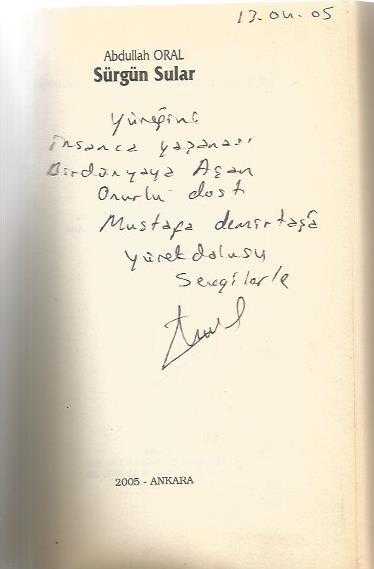 13.04.05
Abdullah ORAL
Sürgün Sular
Yüreğini
insanca yaşanası
Birdünyaya Açan
Onurlu dost
Mustafa demirtaşa
yürek dolusu
Sevgilerle
2005 - ANKARA